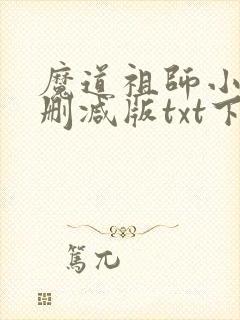 魔道祖師小
刪减版txt下
篤兀